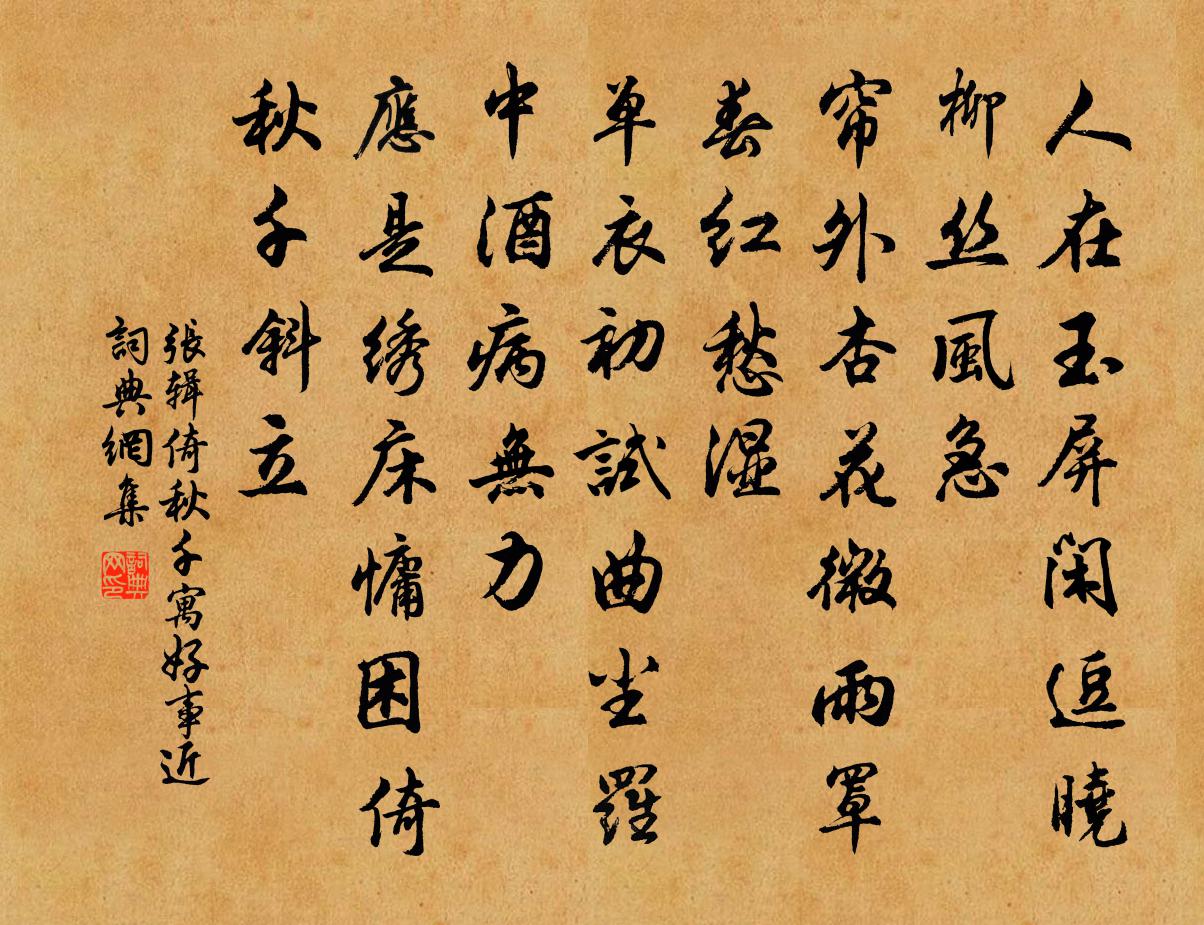 人在玉屏闲逗曉
柳丝風急
帘外杏花微雨罩
春红愁湿
单衣初試曲尘羅
中酒病無力
應是绣床慵困倚
秋千斜立
張辑倚秋千寓好事近
詞典網集
詞典网印